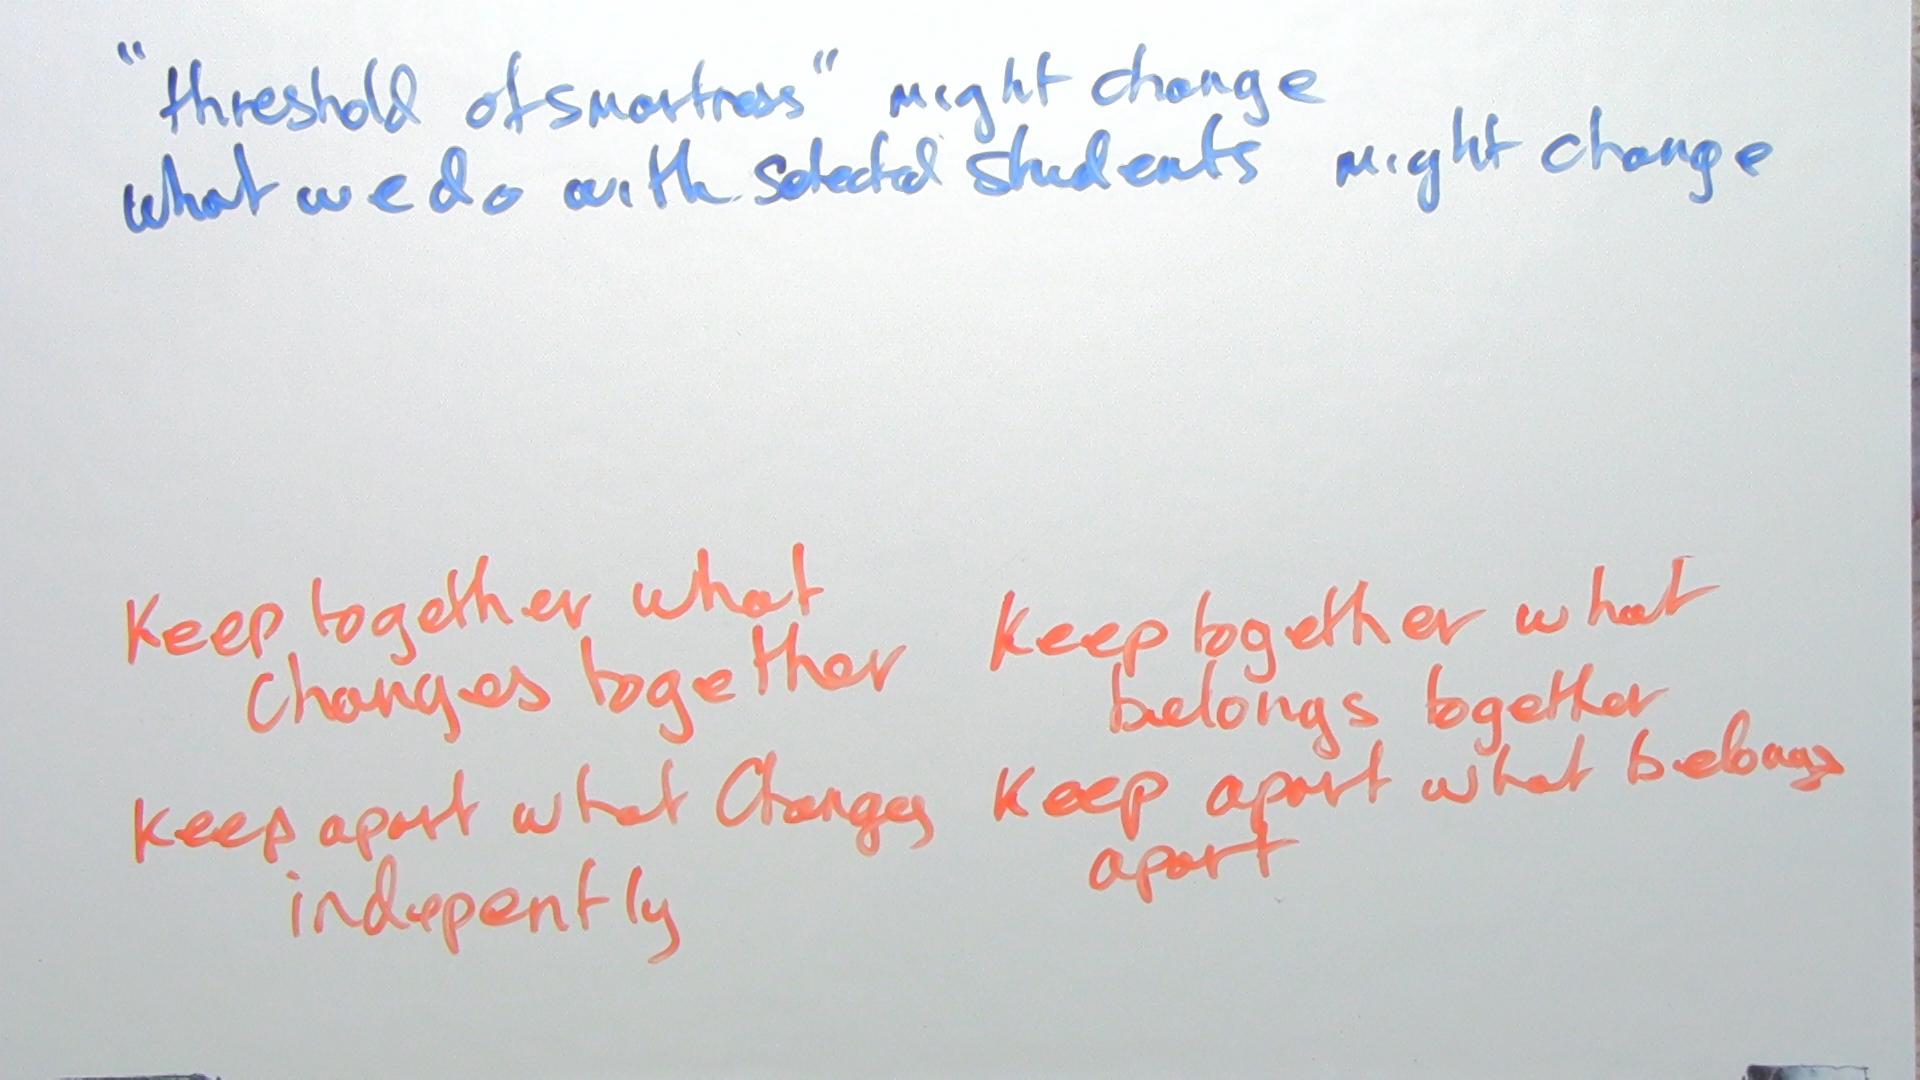 "threshold of smartness" might change
what we do with selected students might change
Keep together what
changes together
Keep apart what Changes
indepently
Keep together what
belongs together
Keep apart what belongs
apart